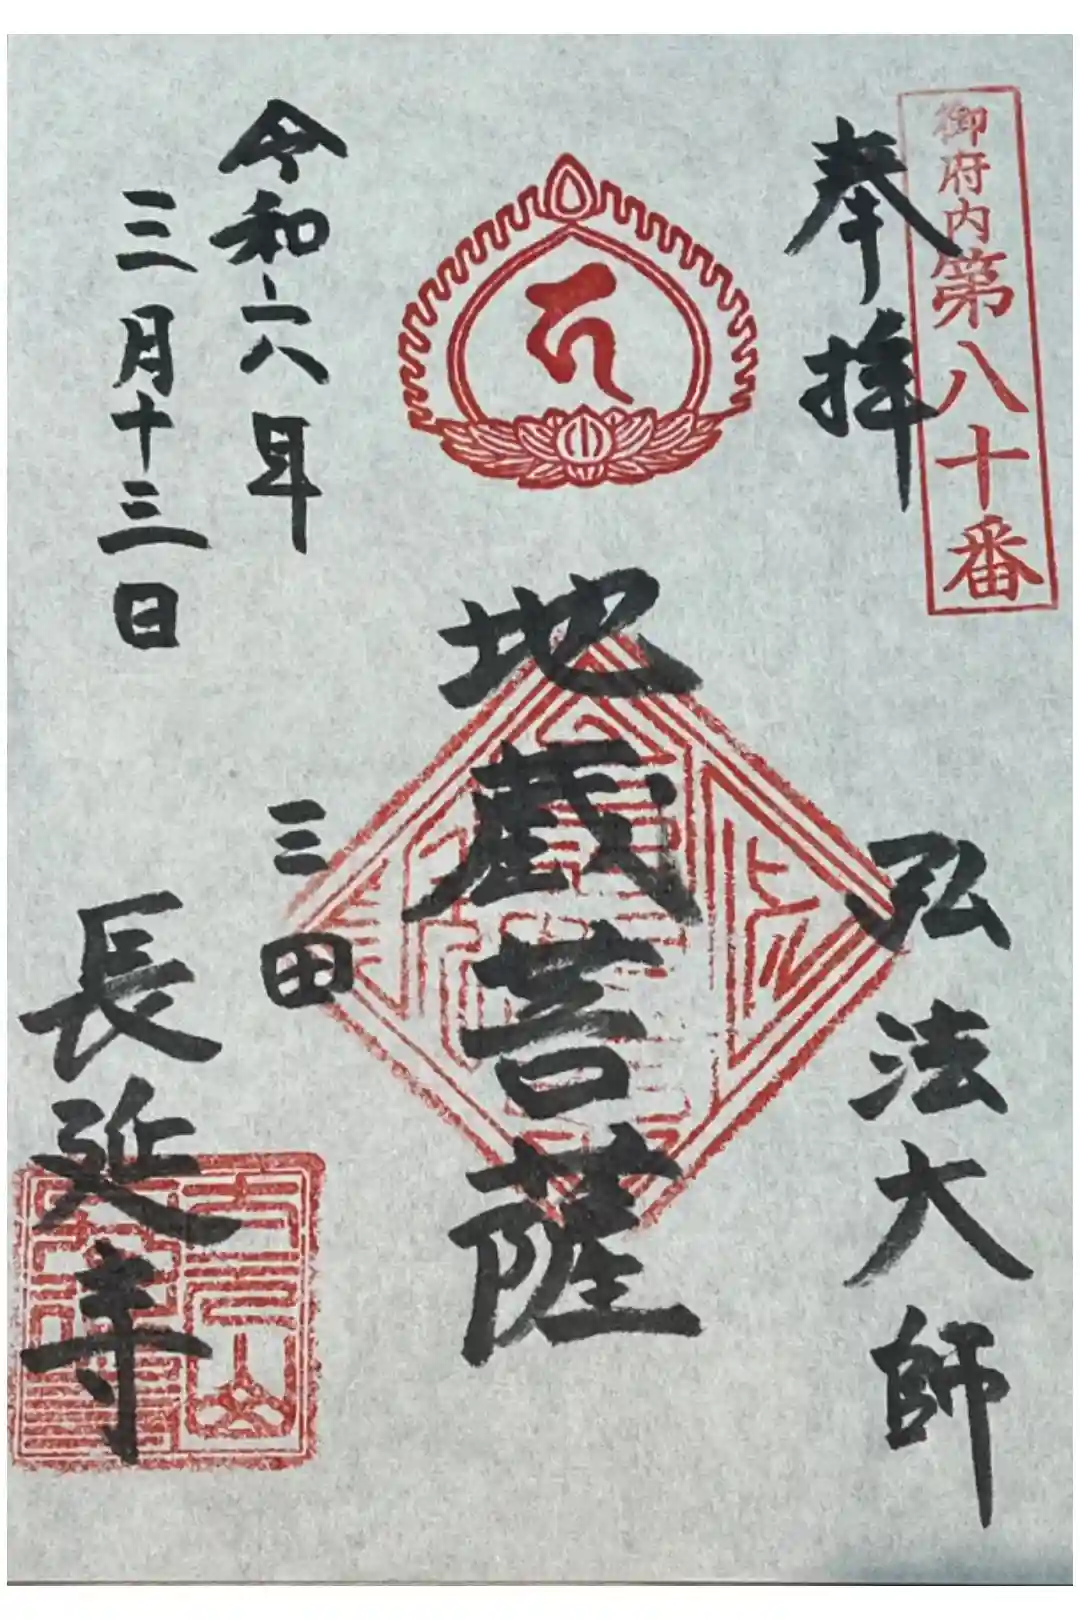 御府内第八十番
奉拝
弘法大師
地蔵菩薩
令和六年
三月十三日
三田
長延寺